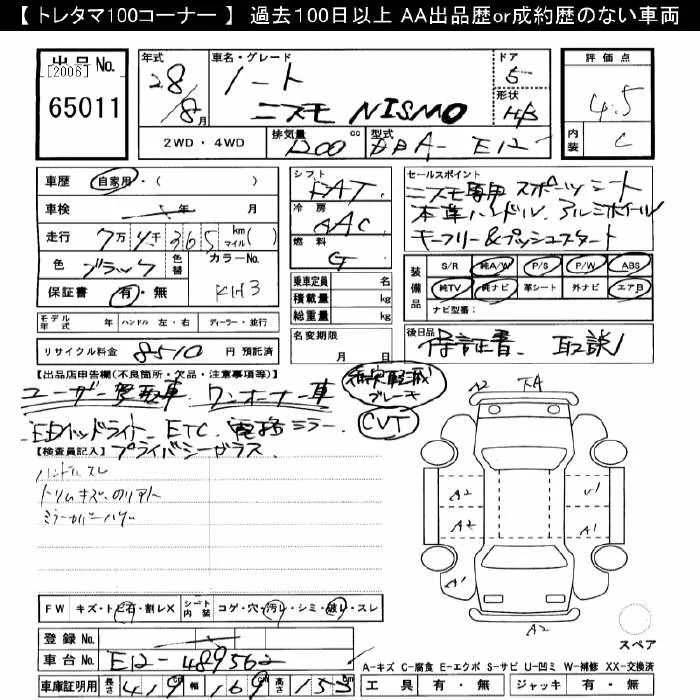 【 トレタマ100コーナー 】 過去100日以上 AA出品歴or成約歴のない車両
出品No. [2006] 65011
年式 28/8月
車名・グレード ノート ニスモ NISMO
ドア 5
形状 H/B
評価点 4.5
内装 C
2WD・4WD
排気量 1200 cc
型式 DBA- E12
車歴 自家用・( )
車検 年 月
走行 7万4千365 km マイル( )
色 ブラック 色替 カラーNo. KH3
保証書 有・無
シフト FAT
冷房 AAC
燃料 G
乗車定員 名
積載量 kg
総重量 kg
セールスポイント
ニスモ専用 スポーツシート
本革ハンドル、アルミホイール
キーフリー&プッシュスタート
装備品 S/R 純A/W P/S P/W ABS
純TV 純ナビ 革シート 外ナビ エアB
ナビ型番:
モデル年式 年 ハンドル 左・右 ディーラー・並行
リサイクル料金 8510 円 預託済
名変期限 月 日
後日品 保証書、取説
【出品店申告欄(不良箇所・欠品・注意事項等)】
ユーザー買取車 ワンオーナー車
衝突軽減ブレーキ
LEDヘッドライト、ETC、電格ミラー、
CVT
プライバシーガラス
【検査員記入】
ハンドルスレ
トリムキズ、のりアト
ミラーカバーハゲ
A2 FA
A2 U1
A2 A1
A1
A2
スペア
FW キズ・ト ビ石・割レX シート内装 コゲ・穴・汚レ・シミ・破レ・スレ
登録No.
車台No. E12-489562
車庫証明用 長さ 419 幅 169 高さ 153 cm
A-キズ C-腐食 E-エクボ S-サビ U-凹ミ W-補修 XX-交換済
工具 有・無 ジャッキ 有・無